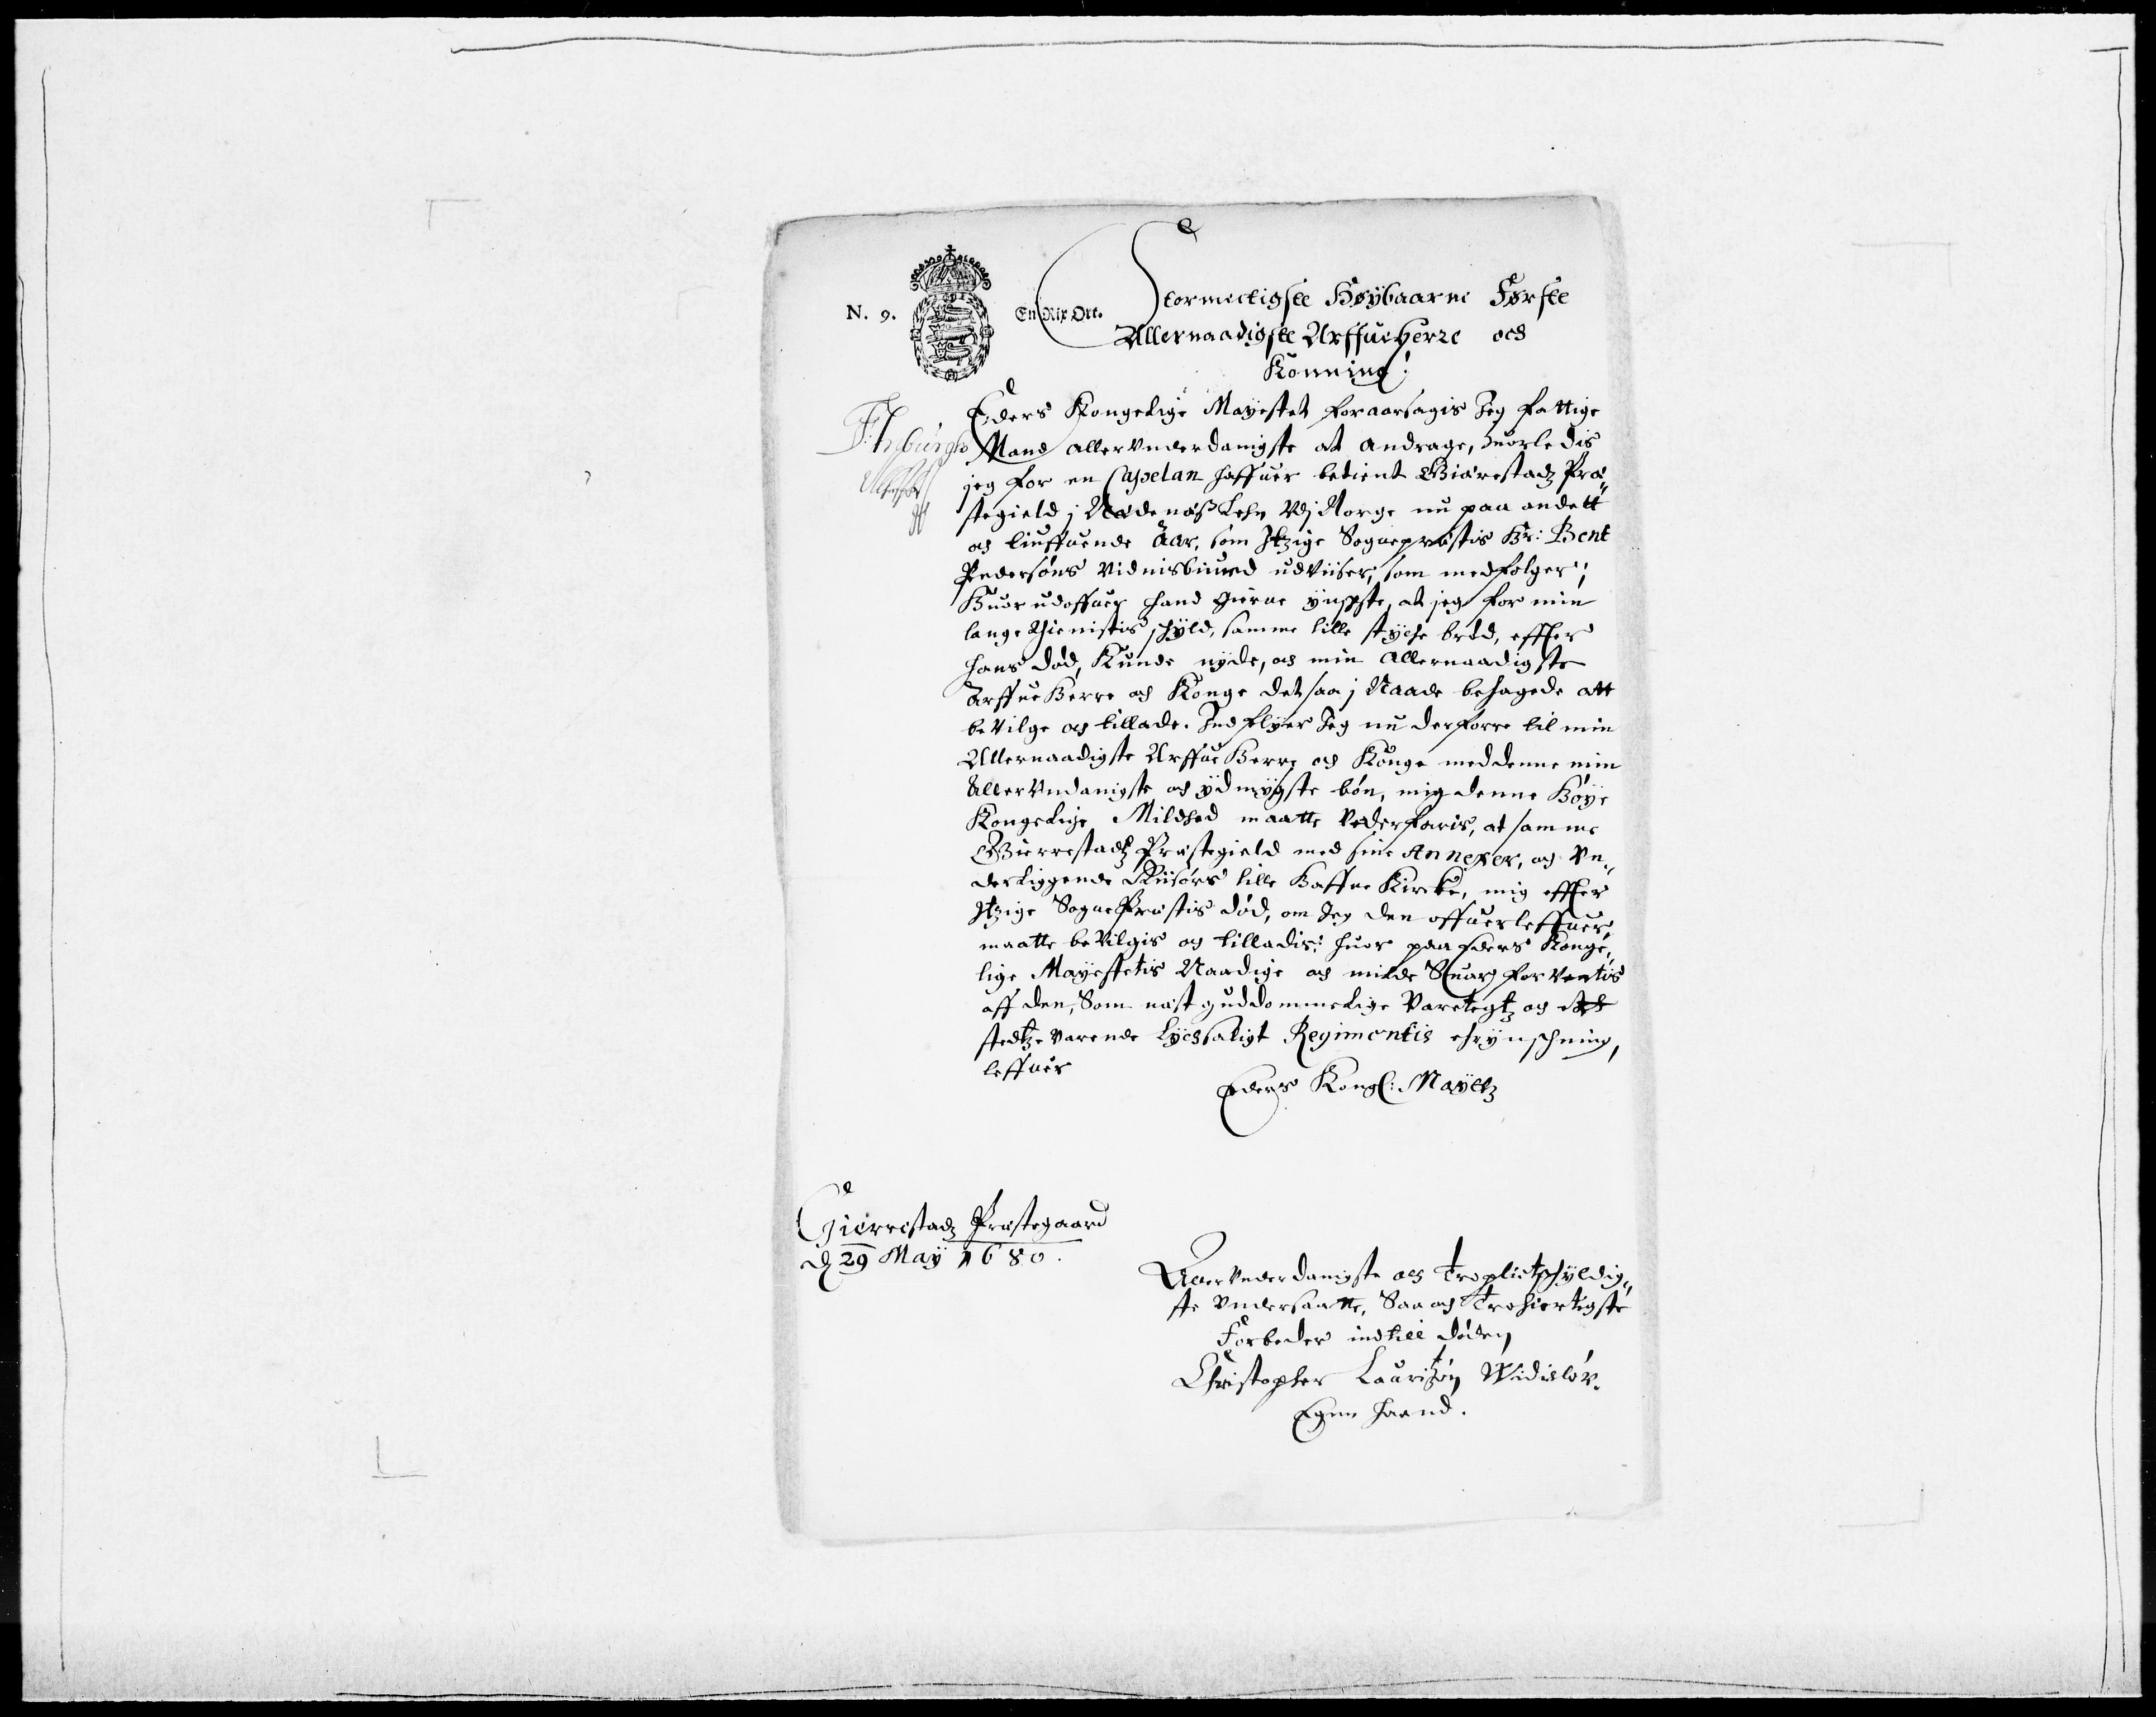 N. 9.
En Rix Ort.
Stormectigste Høÿbaarne Første
Allernaadigste Arffueherre och
Konning!
Eders Kongelige Mayestet foraarsagis Jeg fattige
Mand allervnderdanigste at andrage, huorledis
jeg for en Capelan haffuer betient Giærestadz Præ„
stegield j Nedenæss Lehn vdj Norge nu paa andett
og tiuffuende Aar, som Jtzige Sognepræstis Hr: Bent
Pedersøns Vidnisbiurd udviiser, som medfølger;
Huor udoffuer hand gierne ynschte, at jeg for min
lange thienistis schyld, samme lille stÿche brød, effter
hans død, Kunde nÿde, og min Allernaadigste
ArffueHerre og Konge det saa j Naade behagede att
bevilge og tillade. Indflÿer Jeg nu derforre til min
Allernaadigste ArffueHerre og Konge med denne min
Allervndanigste og ÿdmÿgste bøn, mig denne Høÿe
Kongelige Mildhed maatte Vederfaris, at samme
Gierrestadtz Præstegield med sine Annexer, og vn„
derliggende Riisørs lille Haffne Kircke, mig effter
Jtzige SognePræstis død, om Jeg den offuerleffuer,
maatte bevilgis og tilladis: huor paa Eders Konge„
lige Mayestetis Naadige og milde Suar forventis
aff den, Som næst guddommelige Varetegtz og
stedtze varende Lychsaligt Regimentis ehrynschning,
leffuer
Eders Kongl: Mayttz
Gierrestadz Præstegaard
d 29 Maÿ 1680.
Allervnderdanigste och Tropligtschÿldig„
ste vndersaatte, Saa og Trohiertigste
Forbeder indtill døden
Christopher Lauritzøn Widisløv.
Egen haand.